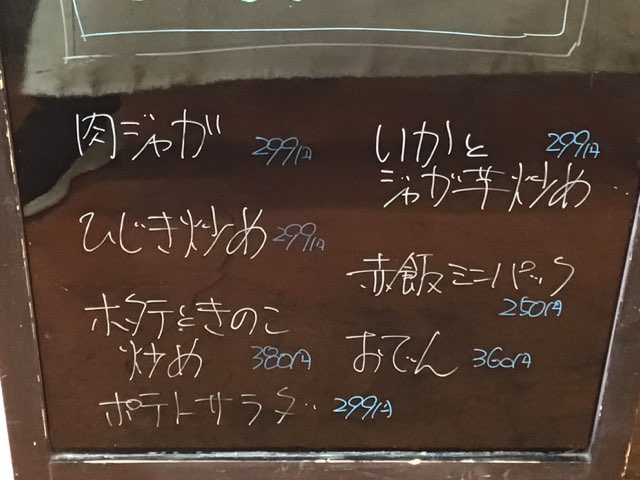 肉ジャガ 299円
ひじき炒め 299円
ホタテときのこ
炒め 380円
ポテトサラダ 299円
いかと 299円
ジャガ芋炒め
赤飯ミニパック
250円
おでん 360円